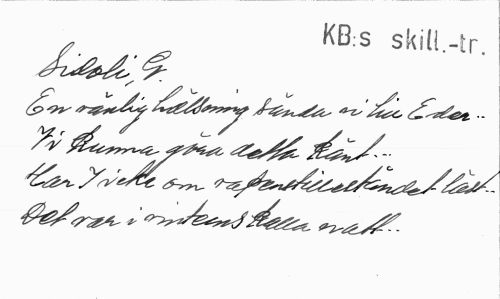 KB:s skill.-tr.
Sidoli, G.
En vänlig hälsning sända vi till Eder..
Vi kunna göra detta känt...
Har I icke om vapenstilleståndet läst..
Det var i vinterns kalla natt..